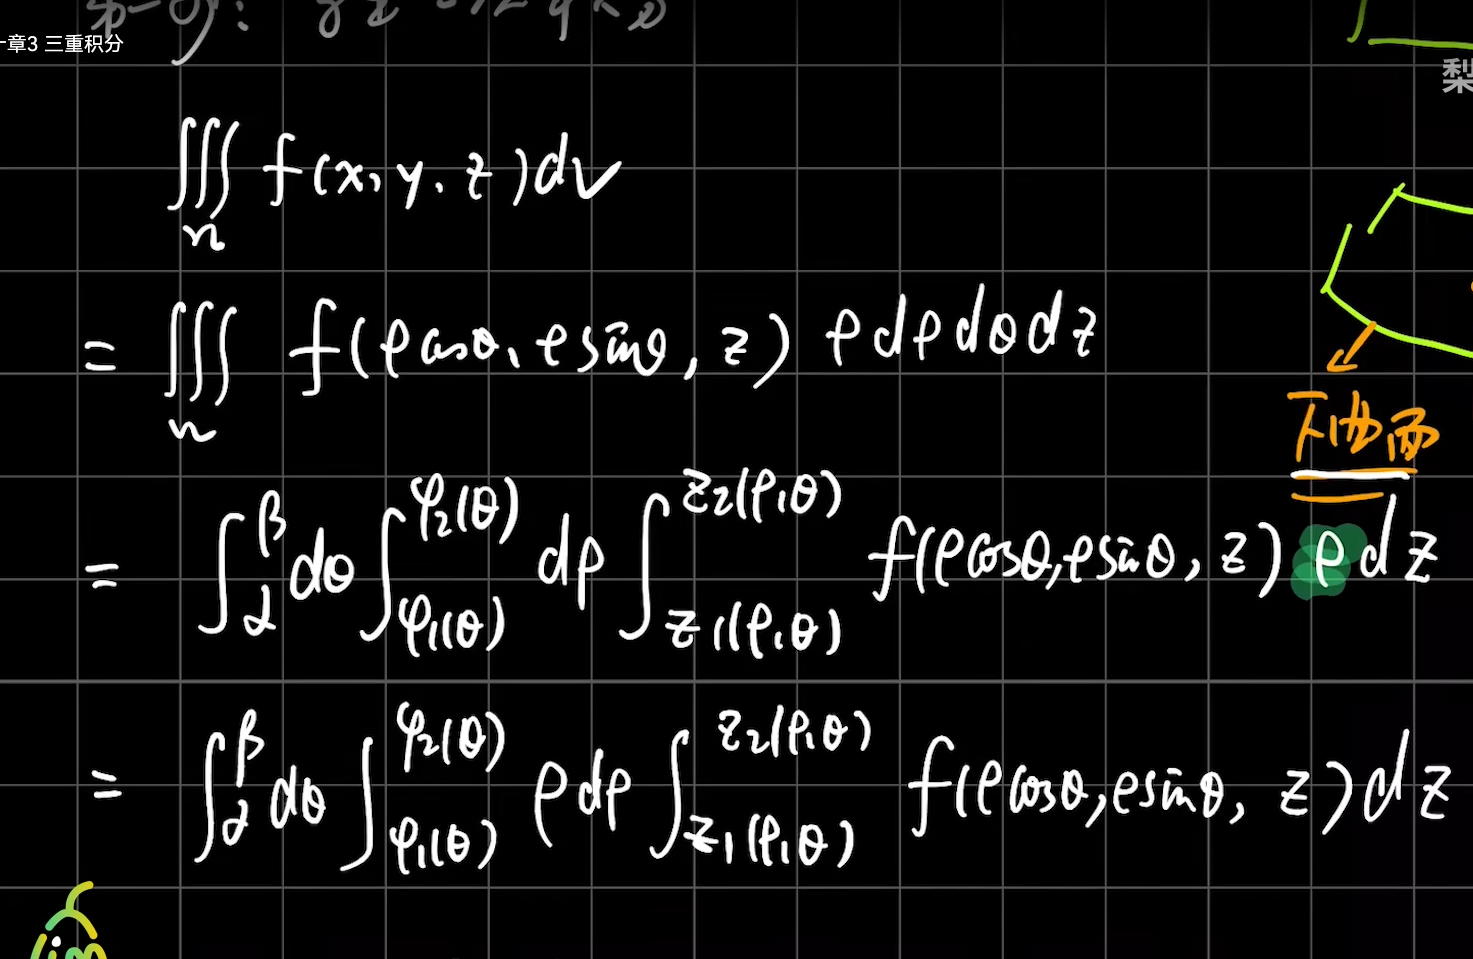 章3 三重积分
梨
∭ f(x, y, z)dv
Ω
= ∭ f(ρcosθ, ρsinθ, z) ρdρdθdz
Ω
下曲面
= ∫_α^β dθ ∫_{φ1(θ)}^{φ2(θ)} dρ ∫_{z1(ρ,θ)}^{z2(ρ,θ)} f(ρcosθ, ρsinθ, z) ρdz
= ∫_α^β dθ ∫_{φ1(θ)}^{φ2(θ)} ρdρ ∫_{z1(ρ,θ)}^{z2(ρ,θ)} f(ρcosθ, ρsinθ, z)dz